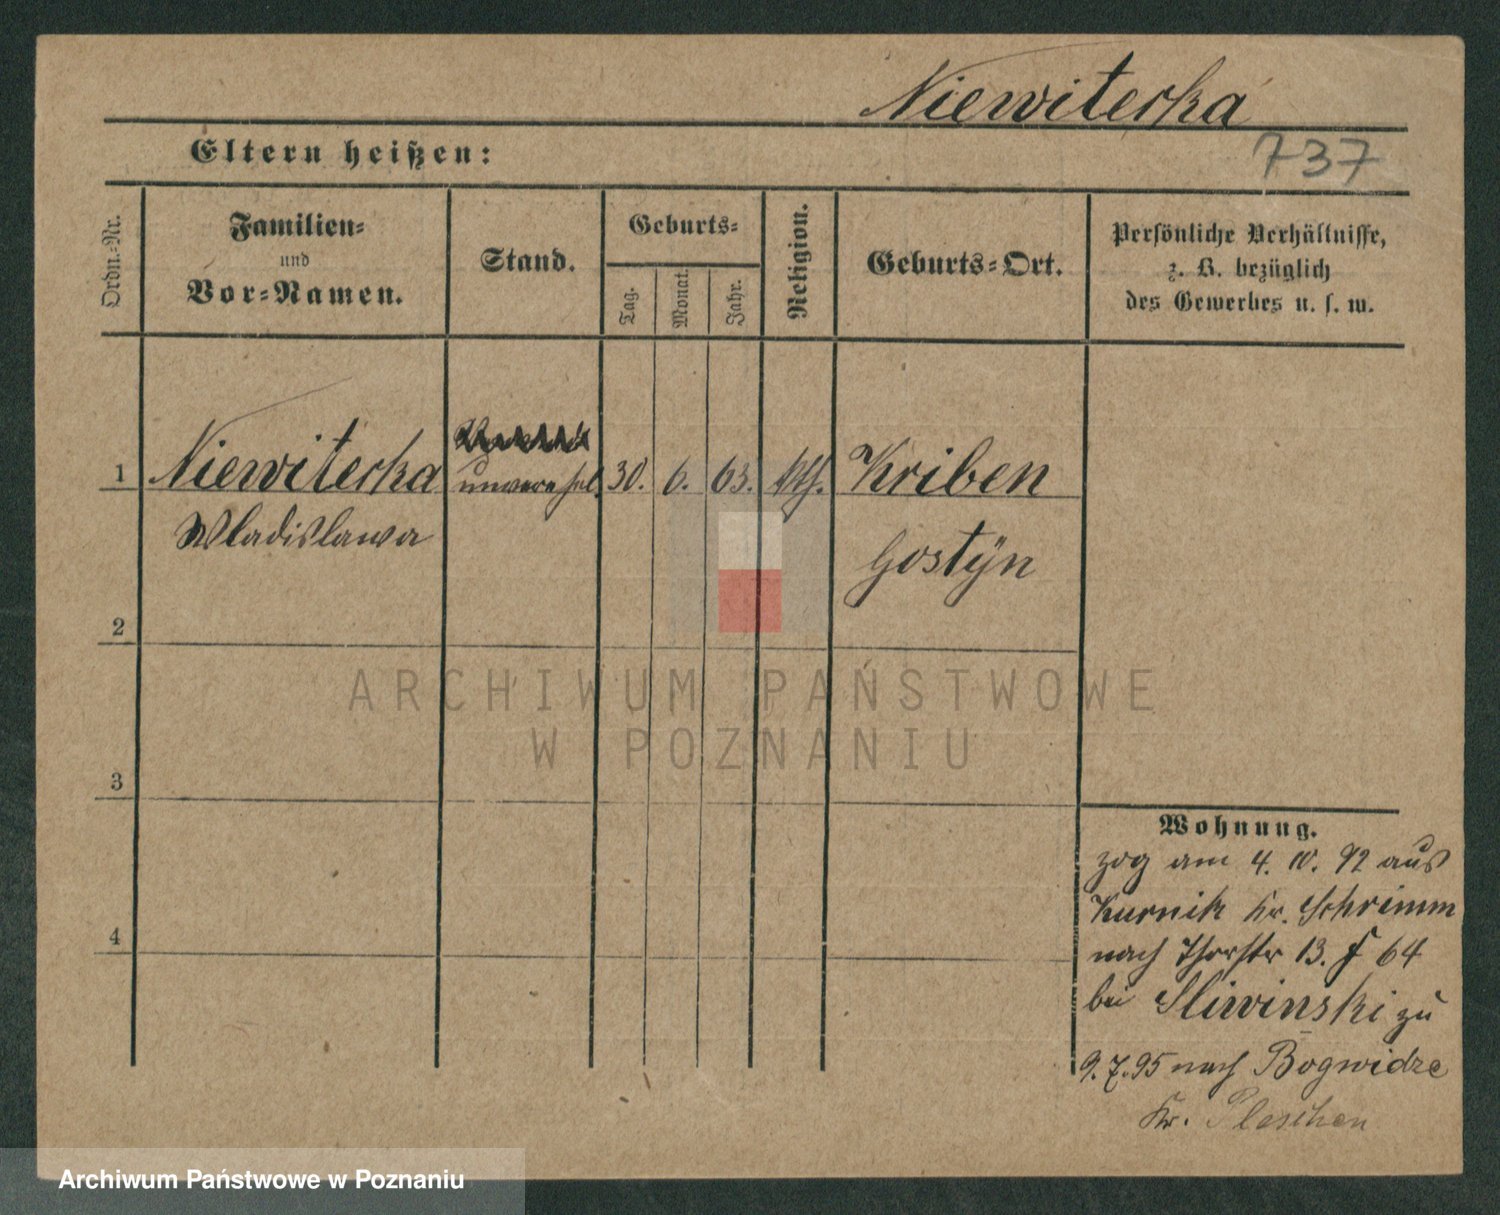 Niewiterka
737
Eltern heißen:
Ordn.-Nr.
Familien-
und
Vor-Namen.
Stand.
Geburts-
Tag.
Monat.
Jahr.
Religion.
Geburts-Ort.
Persönliche Verhältnisse,
z. B. bezüglich
des Gewerbes u. s. w.
1 Niewiterka unverehel. 30. 6. 63. kth. Kriben
Wladislawa Gostÿn
2
3
4
ARCHIWUM PAŃSTWOWE
W POZNANIU
Wohnung.
zog am 4. 10. 92 aus
Kurnik Kr. Schrimm
nach Thorstr 13. f 64
bei Sliwinski zu
9. 7. 95 nach Bogwidze
Kr. Pleschen
Archiwum Państwowe w Poznaniu